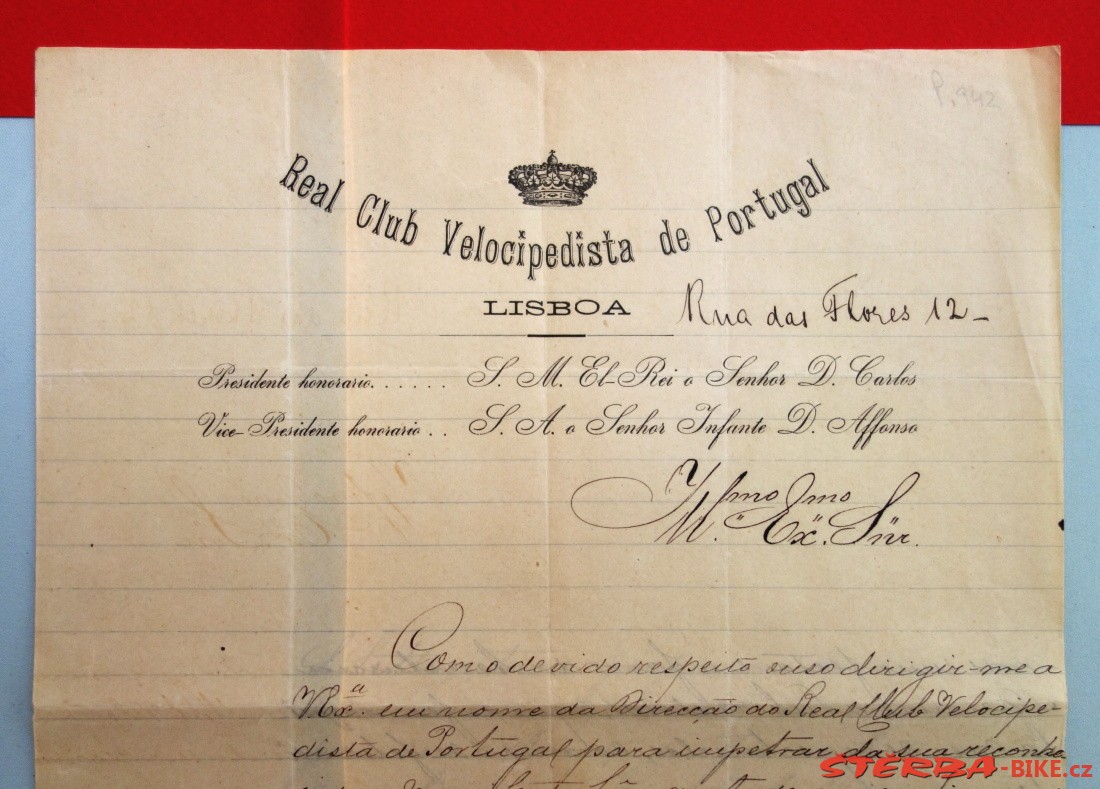 P. 942
Real Club Velocipedista de Portugal
LISBOA Rua das Flores 12-
Presidente honorario...... S. M. El-Rei o Senhor D. Carlos
Vice-Presidente honorario.. S. A. o Senhor Infante D. Affonso
Ill.mo Ex.mo Snr.
Com o devido respeito ouso dirigir-me a
V Ex.a em nome da Direcção do Real Club Velocipe-
dista de Portugal para impetrar da sua reconhe
STERBA-BIKE.cz